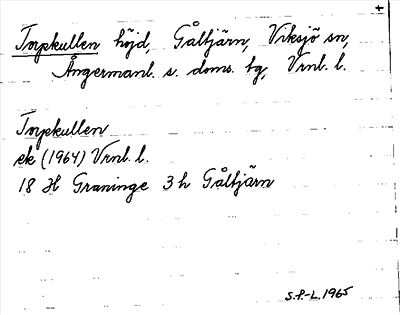 Torpkullen höjd, Gåltjärn, Viksjö sn,
Ångermanl. s. doms. tg, Vrnl. l.
Torpkullen
ek (1964) Vrnl. l.
18 H Graninge 3 h Gåltjärn
S.P.-L. 1965